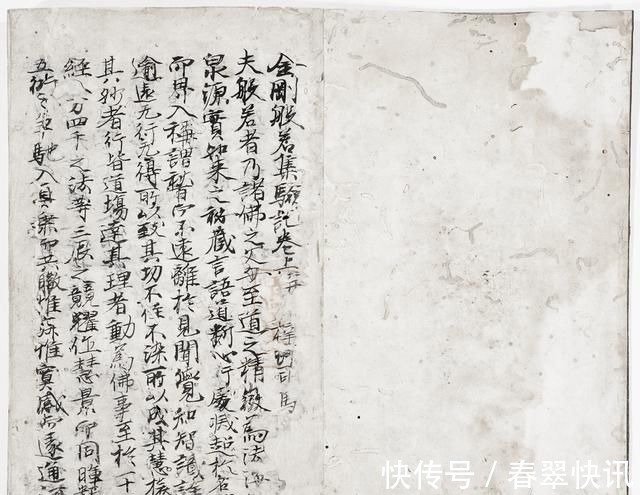 金剛般若集驗記卷上并 梓州司馬
夫般若者乃諸佛之父母至道之精微為法海
泉源實如來之秘藏言語道斷心行處滅超於名
而界入稱謂暫而不遠離於見聞覺知智識
逾遠无行无得所以致其功不住不染所以成其慧
其妙者行皆道場達其理者動為佛事至於十
經八万四千之法等三辰之競耀任慧景而同暉
馳入真 惟 惟實感而遂通
快传号/春翠快讯